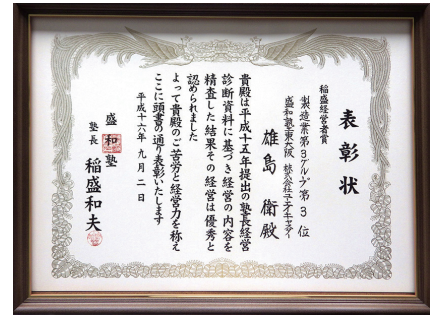 表彰状
稲盛経営者賞
製造業第3グループ第3位
盛和塾東大阪 株式会社ユニオンキャスター
雄島 衛 殿
貴殿は平成十五年提出の塾長経営
診断資料に基づき経営の内容を
精査した結果その経営は優秀と
認められました
よって貴殿のご苦労と経営力を称え
ここに頭書の通り表彰いたします
平成十六年 九月 二日
盛和塾
塾長 稲盛和夫